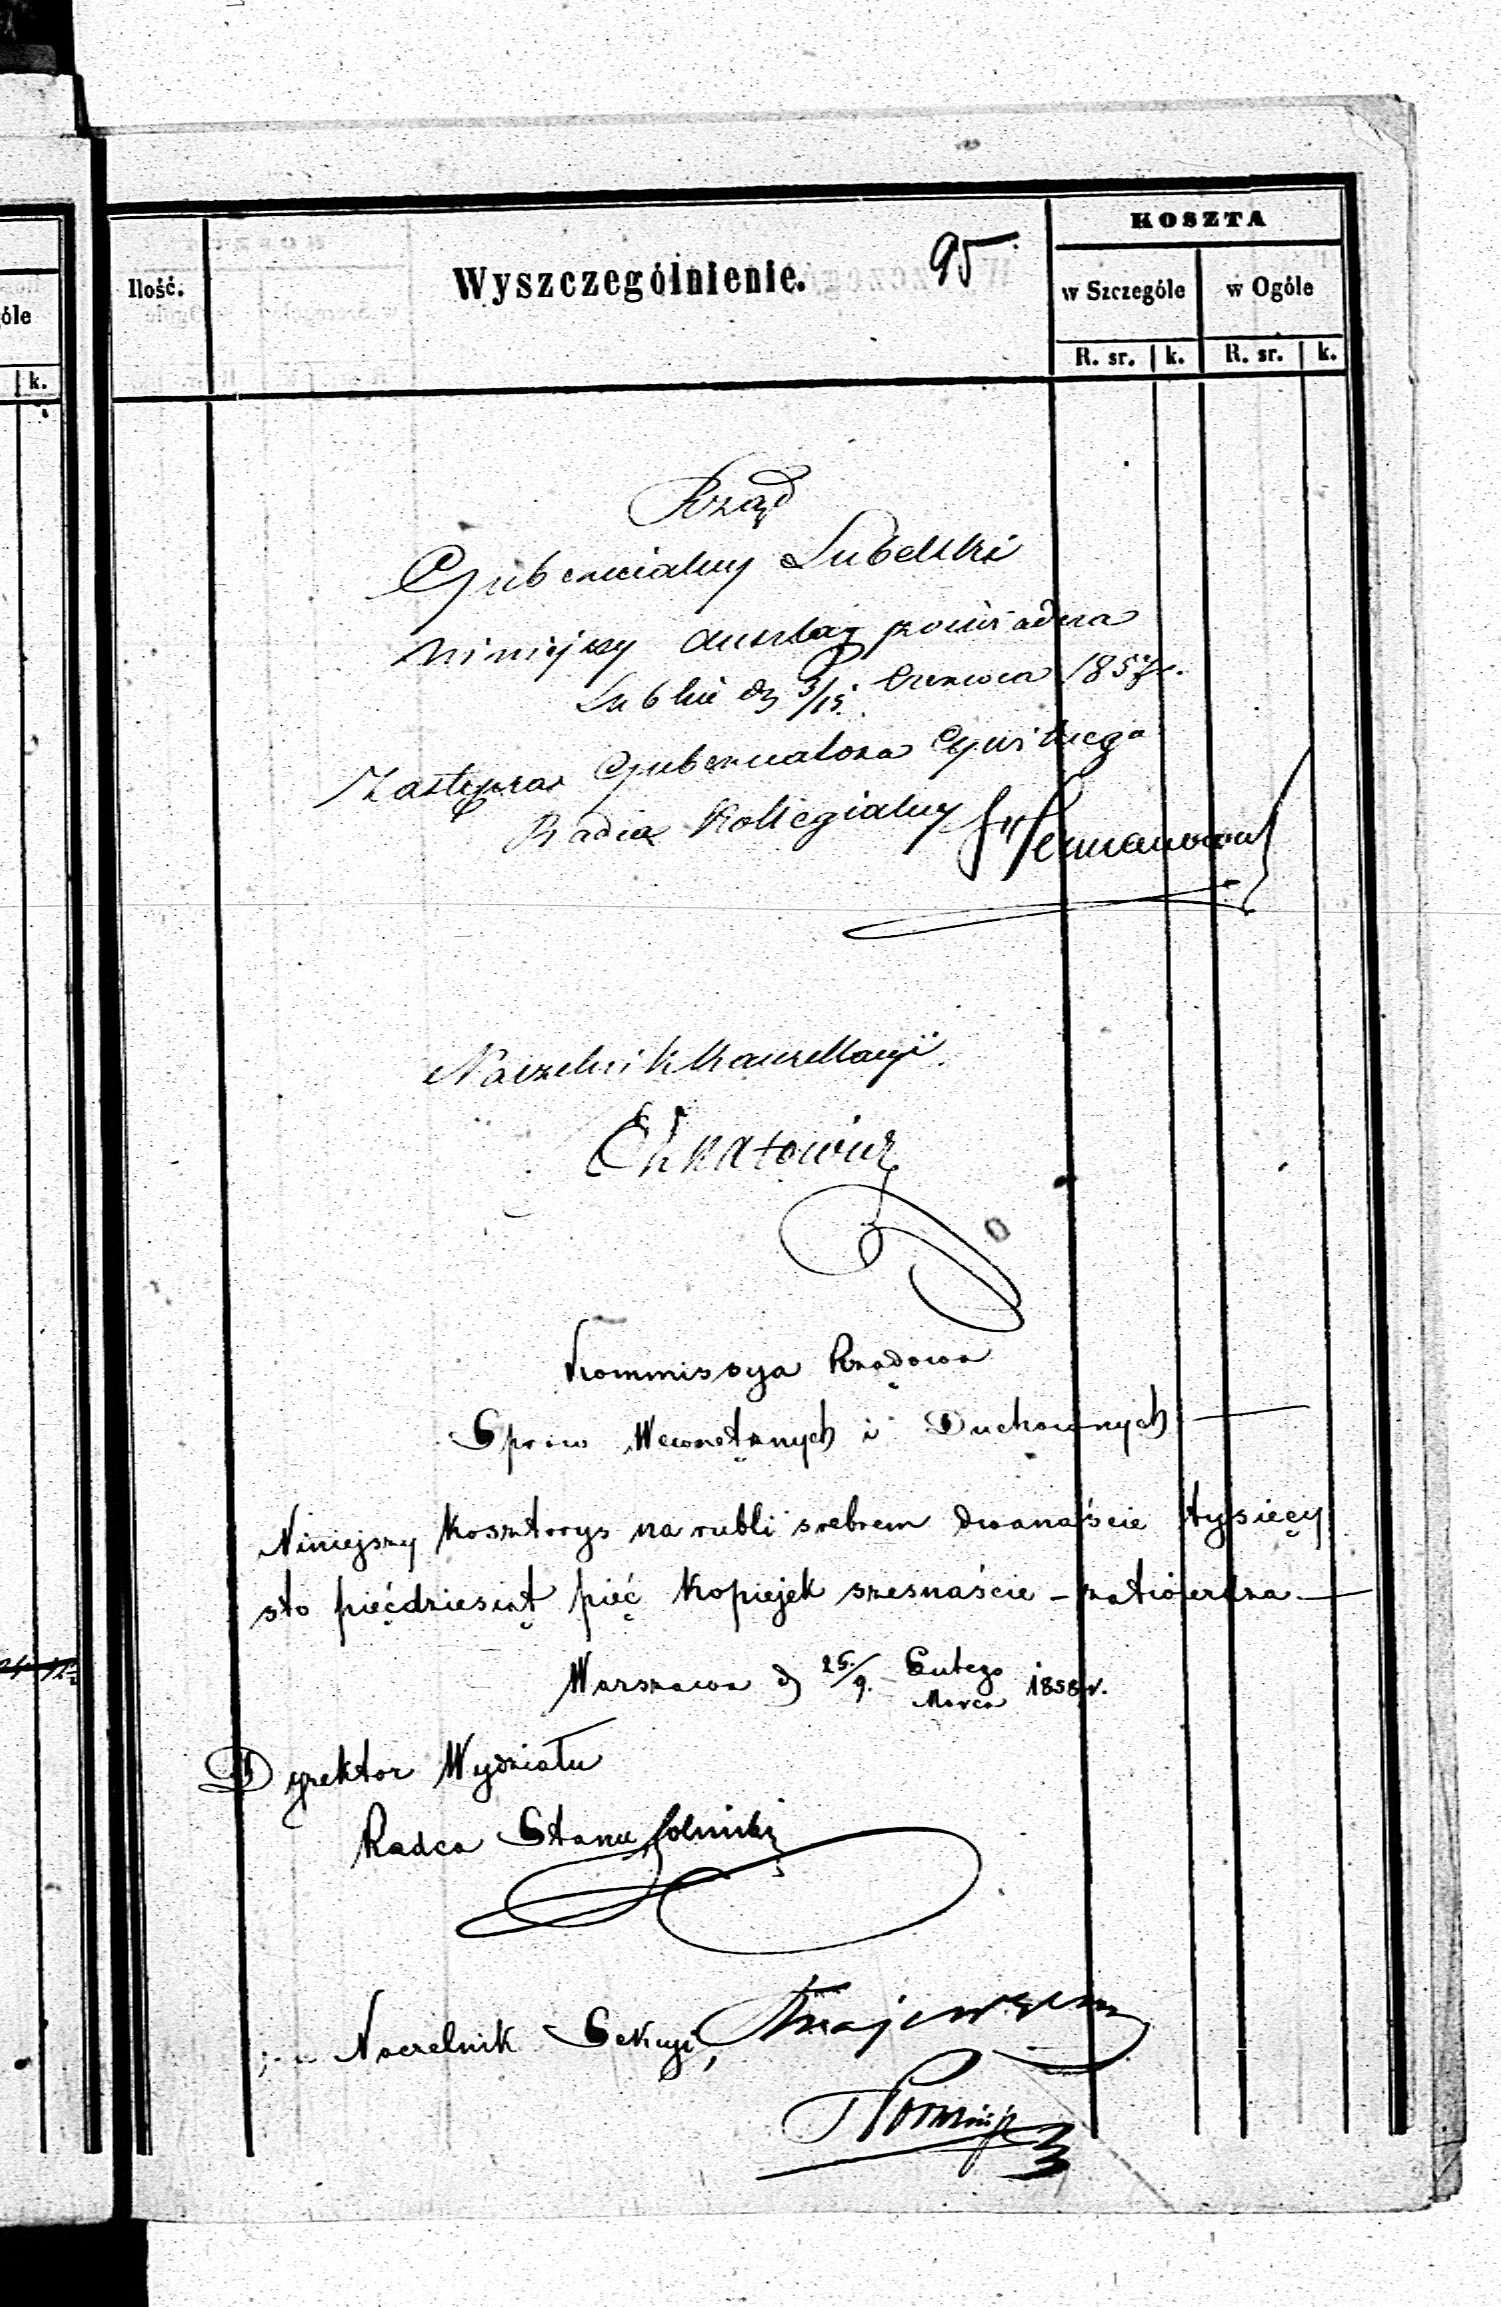 95
KOSZTA
Ilość.
Wyszczególnienie.
w Szczególe
w Ogóle
R. sr.
k.
R. sr.
k.
óle
k.
Rząd
Gubernialny Lubelski
Niniejszy anszlag poświadcza
Lublin d 3/15 Czerwca 1857 r.
Zastępca Gubernatora Cywilnego
Radca Kollegialny
Naczelnik Kancellaryi
Kommissya Rządowa
Spraw Wewnętrznych i Duchownych
Niniejszy kosztorys na rubli srebrem dwanaście tysięcy
sto pięćdziesiąt pięć kopiejek szesnaście – zatwierdza
Warszawa d 25/9 Lutego
Marca 1858 r.
Dyrektor Wydziału
Radca Stanu
Naczelnik Sekcyi,